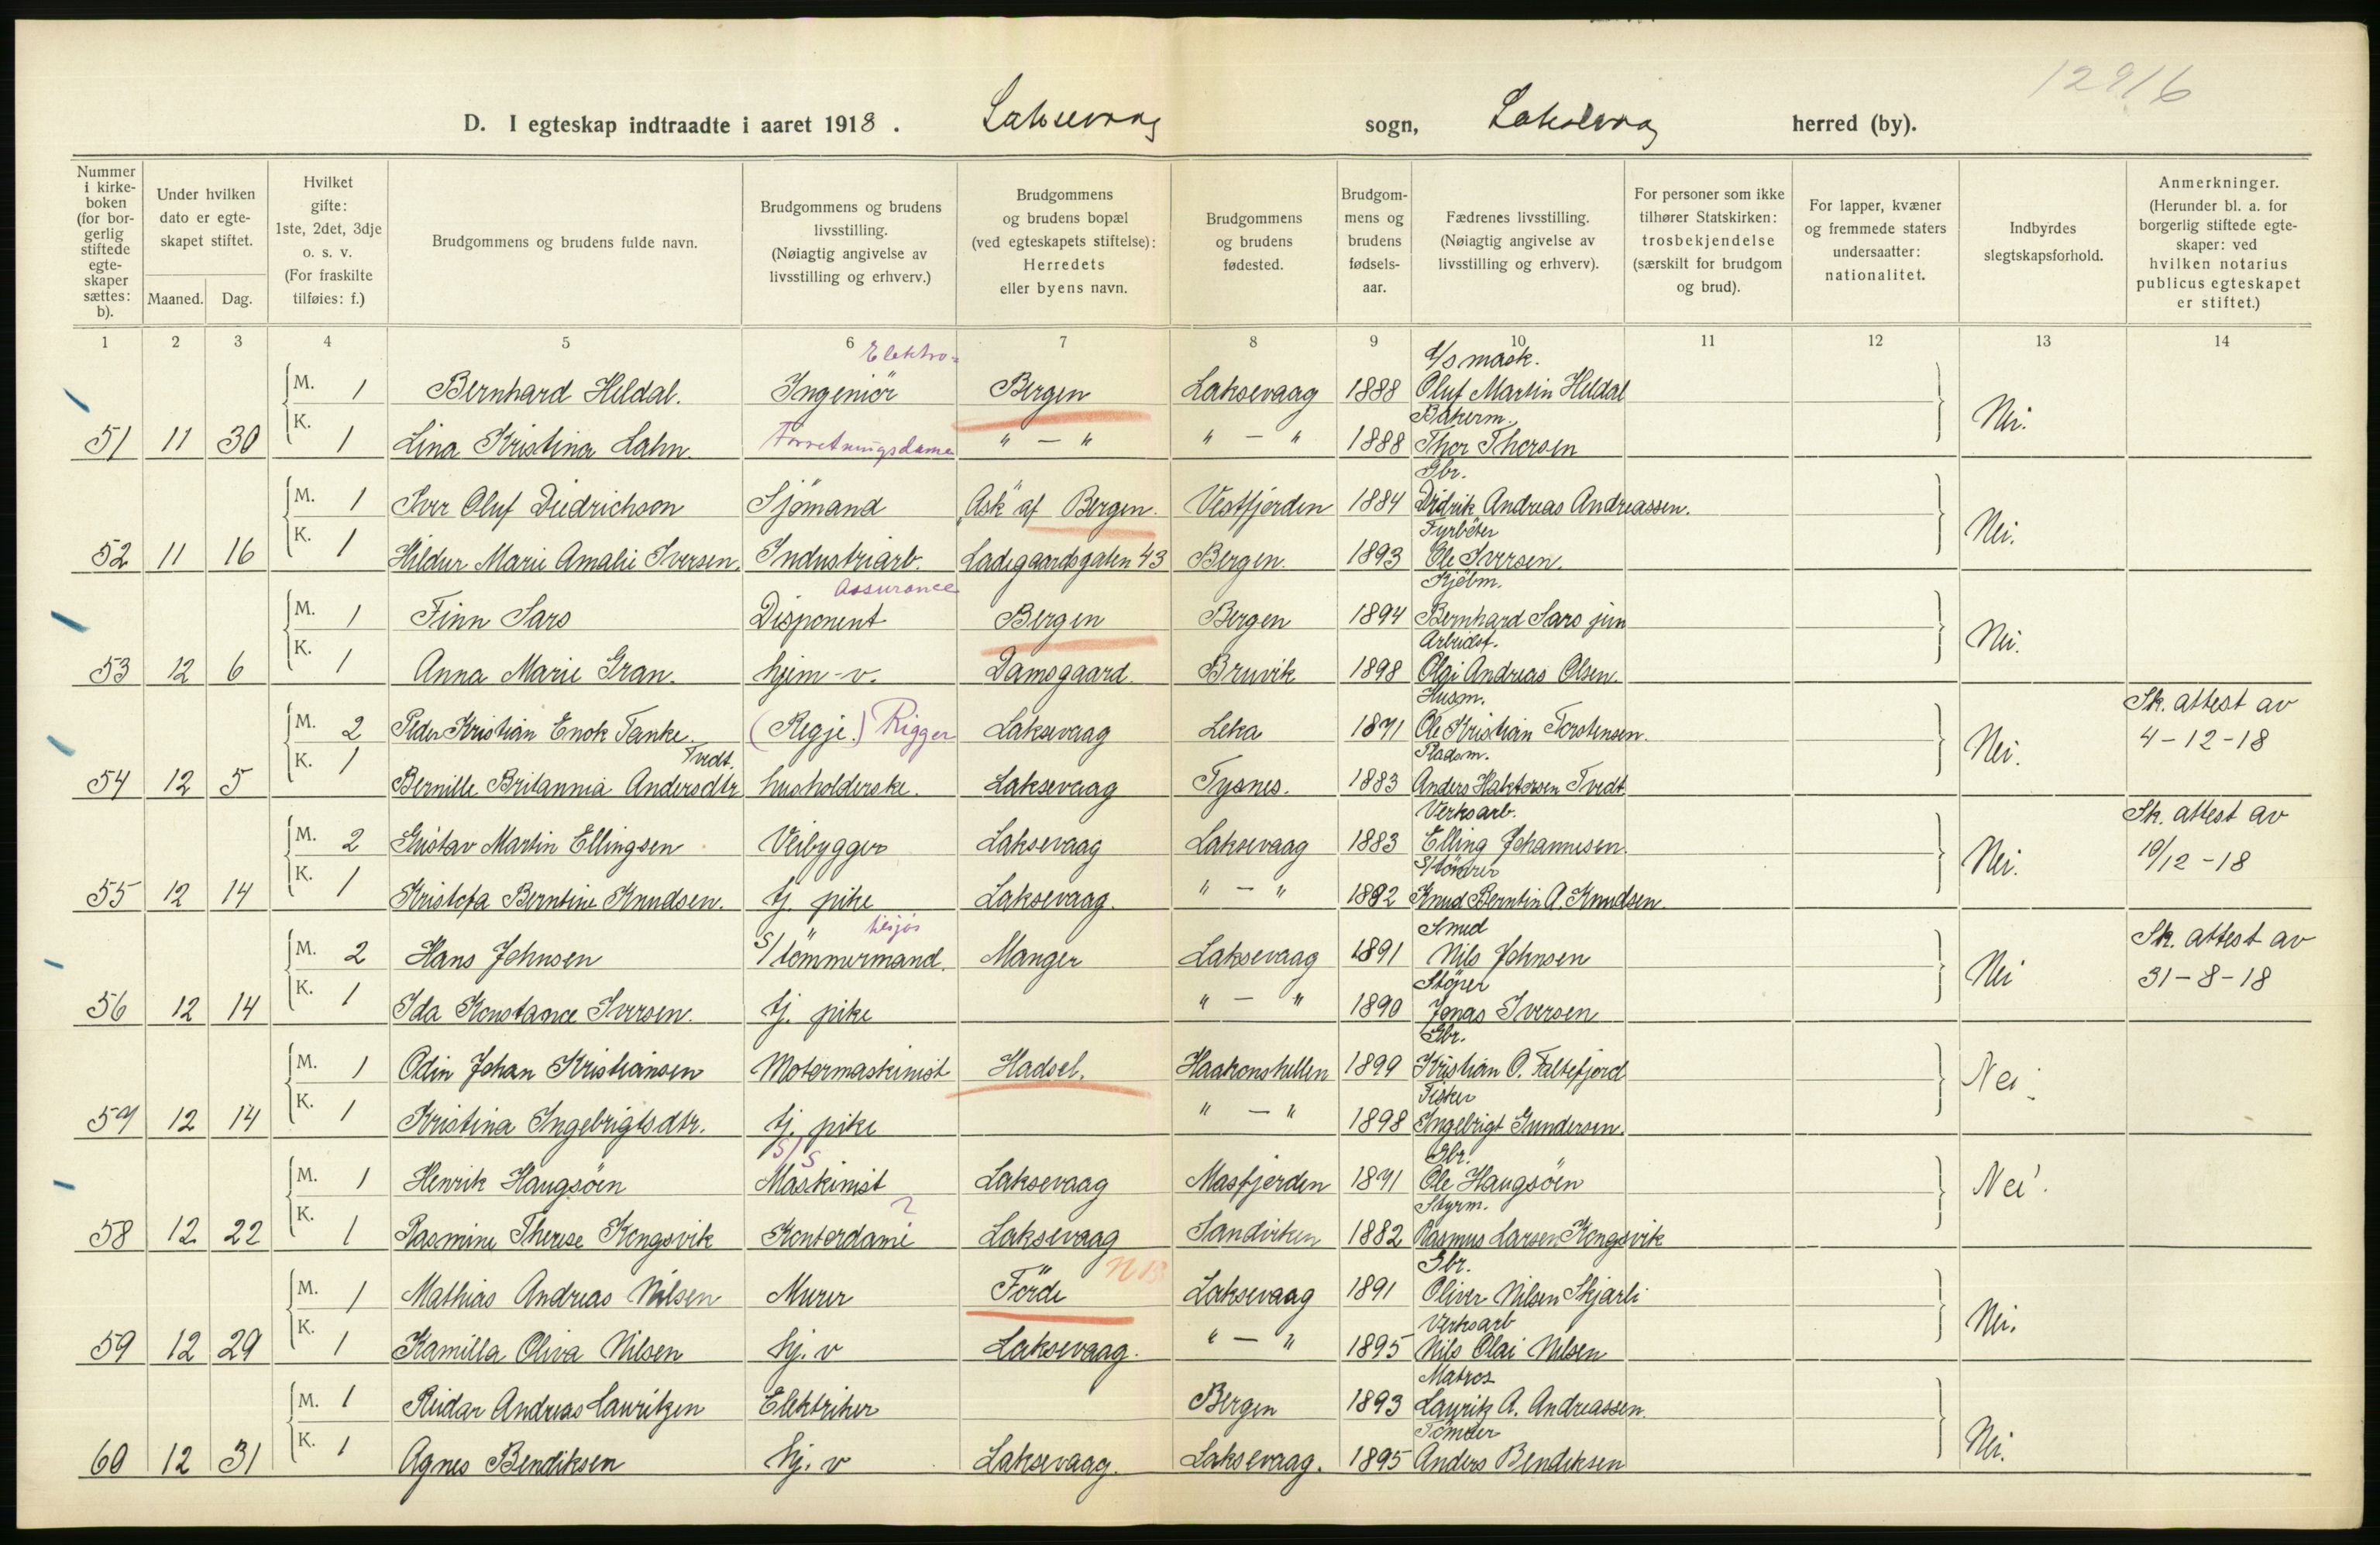 12916
D. I egteskap indtraadte i aaret 1918. Laksevaag sogn, Laksevaag herred (by).
Nummer i kirkeboken (for borgerlig stiftede egteskaper sættes: b).
Under hvilken dato er egteskapet stiftet.
Maaned. Dag.
Hvilket gifte: 1ste, 2det, 3dje o. s. v. (For fraskilte tilføies: f.)
Brudgommens og brudens fulde navn.
Brudgommens og brudens livsstilling. (Nøiagtig angivelse av livsstilling og erhverv.)
Brudgommens og brudens bopæl (ved egteskapets stiftelse): Herredets eller byens navn.
Brudgommens og brudens fødested.
Brudgommens og brudens fødselsaar.
Fædrenes livsstilling. (Nøiagtig angivelse av livsstilling og erhverv).
For personer som ikke tilhører Statskirken: trosbekjendelse (særskilt for brudgom og brud).
For lapper, kvæner og fremmede staters undersaatter: nationalitet.
Indbyrdes slegtskapsforhold.
Anmerkninger. (Herunder bl. a. for borgerlig stiftede egteskaper: ved hvilken notarius publicus egteskapet er stiftet.)
1 2 3 4 5 6 7 8 9 10 11 12 13 14
Elektro= D/S mask.
M. 1 Bernhard Heldal. Ingeniör Bergen Laksevaag 1888 Oluf Martin Heldal
Bakerm.
51 11 30 K. 1 Lina Kristina Lahn. Forretningsdame " — " " — " 1888 Thor Thorsen Nei.
Gbr.
M. 1 Iver Oluf Diedrichson Sjömand "Ask" af Bergen. Vestfjorden 1884 Didrik Andreas Andreassen.
Fyrböter
52 11 16 K. 1 Hildur Marie Amalie Iversen. Industriarb. Ladegaardsgaten 43 Bergen. 1893 Ole Iversen. Nei.
Assurance Kjöbm.
M. 1 Finn Sars Disponent Bergen Bergen 1894 Bernhard Sars jun
Arbeidst.
53 12 6 K. 1 Anna Marie Gran. hjem-v. Damsgaard. Bruvik 1898 Olai Andreas Olsen. Nei.
Husm. Sk. attest av
M. 2 Peder Kristian Enok Tanke. (Regje.) Rigger Laksevaag Leka 1871 Ole Kristian Torstensen. 4-12-18
Tvedt. Pladsm.
54 12 5 K. 1 Bernille Britannia Andersdtr husholderske. Laksevaag Tysnes. 1883 Anders Haktorsen Tvedt. Nei.
Verksarb. Sk. attest av
M. 2 Gustav Martin Ellingsen Veibygger Laksevaag Laksevaag 1883 Elling Johannesen. 19/12-18
S/tömrer
55 12 14 K. 1 Kristofa Berntine Knudsen. tj. pike Laksevaag. " — " 1892 Knud Berntin A. Knudsen. Nei.
Smed Sk. attest av
M. 2 Hans Johnsen S/tömmermand. Manger Laksevaag 1891 Nils Johnsen 31-8-18
Stöper
56 12 14 K. 1 Ida Konstance Iversen. tj. pike " — " 1890 Jonas Iversen Nei
Gbr.
M. 1 Odin Johan Kristiansen Motormaskinist Hadsel. Haakonshellen 1899 Kristian O. Faltefjord
Fisker
57 12 14 K. 1 Kristina Ingebrigtsdtr. tj. pike " — " 1898 Ingebrigt Gundersen. Nei.
S/S Gbr.
M. 1 Henrik Haugsöen Maskinist Laksevaag Masfjorden 1871 Ole Haugsöen
? Styrm.
58 12 22 K. 1 Rasmine Therese Kongsvik Kontordame Laksevaag Sandviken 1882 Rasmus Larsen Kongsvik Nei.
Gbr.
M. 1 Mathias Andreas Nilsen Murer Förde Laksevaag 1891 Oliver Nilsen Skjarli
Verksarb
59 12 29 K. 1 Kamilla Oliva Nilsen hj. v Laksevaag. " — " 1895 Nils Olai Nilsen Nei.
Matros
M. 1 Reidar Andreas Lauritzen Elektriker Bergen 1893 Lauritz A. Andreassen.
Tömrer
60 12 31 K. 1 Agnes Bendiksen hj. v Laksevaag. Laksevaag. 1895 Anders Bendiksen Nei.